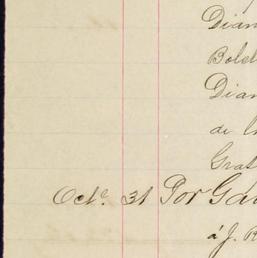 Dian
Bolet
Dian
de
Grat
Octe. 31 Por Ga
á J. R